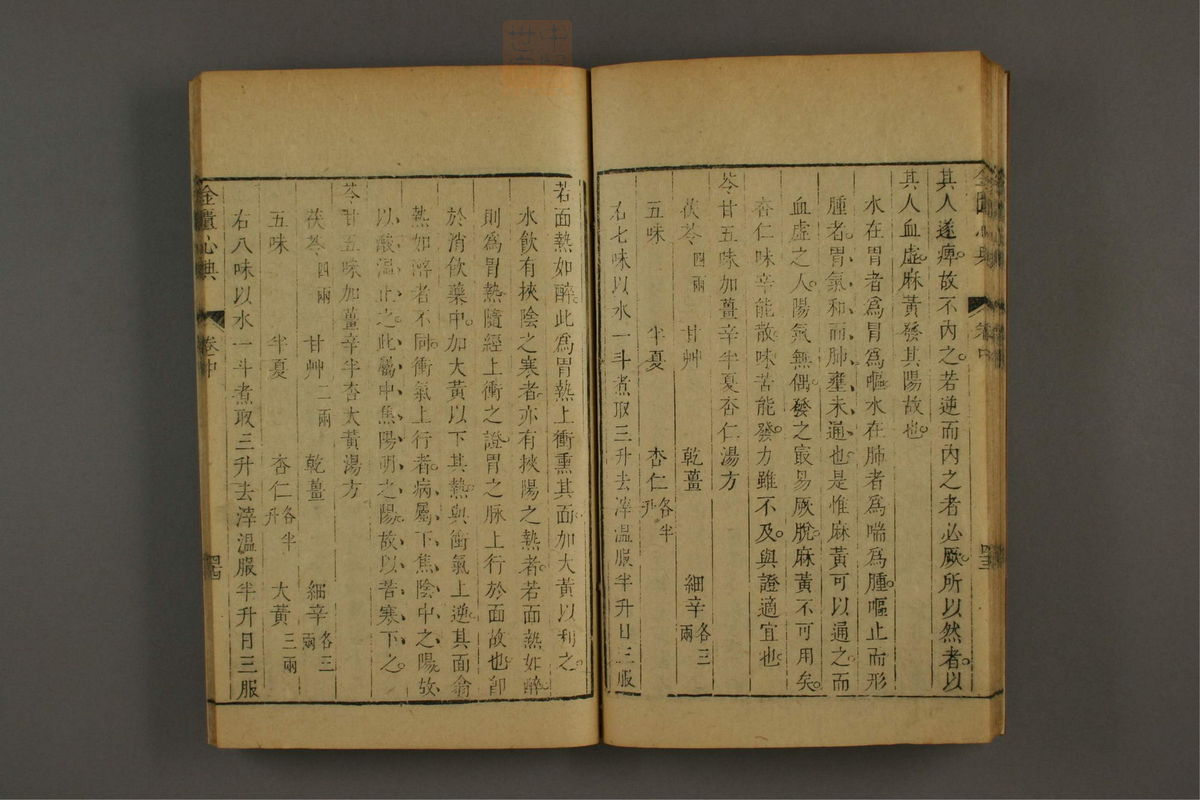 其人遂痺故不內之若逆而內之者必厥所以然者以
其人血虛麻黃發其陽故也
水在胃者為冒為嘔水在肺者為喘為腫嘔止而形
腫者胃氣和而肺壅未通也是惟麻黃可以通之而
血虛之人陽氣無偶發之最易厥脫麻黃不可用矣
杏仁味辛能散味苦能發力雖不及與證適宜也
苓甘五味加薑辛半夏杏仁湯方
茯苓四兩 甘艸 乾薑 細辛各三兩
五味 半夏 杏仁各半升
右七味以水一斗煮取三升去滓溫服半升日三服
金匱心典 卷中 四三
若面熱如醉此為胃熱上衝熏其面加大黃以利之
水飲有挾陰之寒者亦有挾陽之熱者若面熱如醉
則為胃熱隨經上衝之證胃之脉上行於面故也卽
於消飲藥中加大黃以下其熱與衝氣上逆其面翕
熱如醉者不同衝氣上行者病屬下焦陰中之陽故
以酸溫止之此屬中焦陽明之陽故以苦寒下之
苓甘五味加薑辛半杏大黃湯方
茯苓四兩 甘艸二兩 乾薑 細辛各三兩
五味 半夏 杏仁各半升 大黃三兩
右八味以水一斗煮取三升去滓溫服半升日三服
金匱心典 卷中 四四